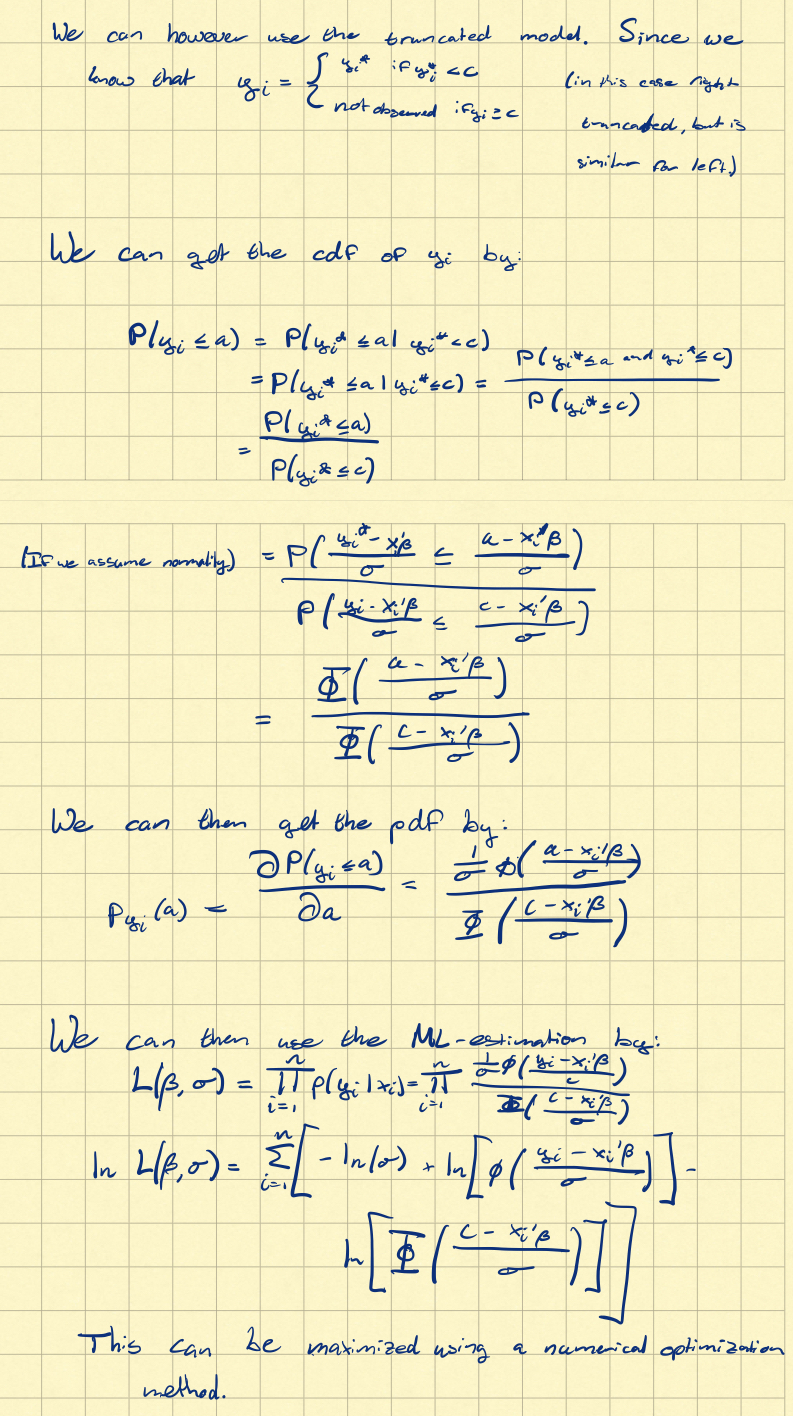 We can however use the truncated model. Since we
know that y_i = { y_i* if y_i* < c
(in this case right
not observed if y_i ≥ c
truncated, but is
similar for left)
We can get the cdf of y_i by:
P(y_i ≤ a) = P(y_i* ≤ a | y_i* < c)
= P(y_i* ≤ a | y_i* ≤ c) = P(y_i* ≤ a and y_i* ≤ c) / P(y_i* ≤ c)
= P(y_i* ≤ a) / P(y_i* ≤ c)
(If we assume normality) = P((y_i* - x_i'β)/σ ≤ (a - x_i'β)/σ) / P((y_i - x_i'β)/σ ≤ (c - x_i'β)/σ)
= Φ((a - x_i'β)/σ) / Φ((c - x_i'β)/σ)
We can then get the pdf by:
p_{y_i}(a) = ∂P(y_i ≤ a)/∂a = 1/σ φ((a - x_i'β)/σ) / Φ((c - x_i'β)/σ)
We can then use the ML-estimation by:
L(β, σ) = ∏_{i=1}^n p(y_i | x_i) = ∏_{i=1}^n 1/σ φ((y_i - x_i'β)/σ) / Φ((c - x_i'β)/σ)
ln L(β, σ) = ∑_{i=1}^n [ - ln(σ) + ln[φ((y_i - x_i'β)/σ)] -
ln[Φ((c - x_i'β)/σ)]]
This can be maximized using a numerical optimization
method.